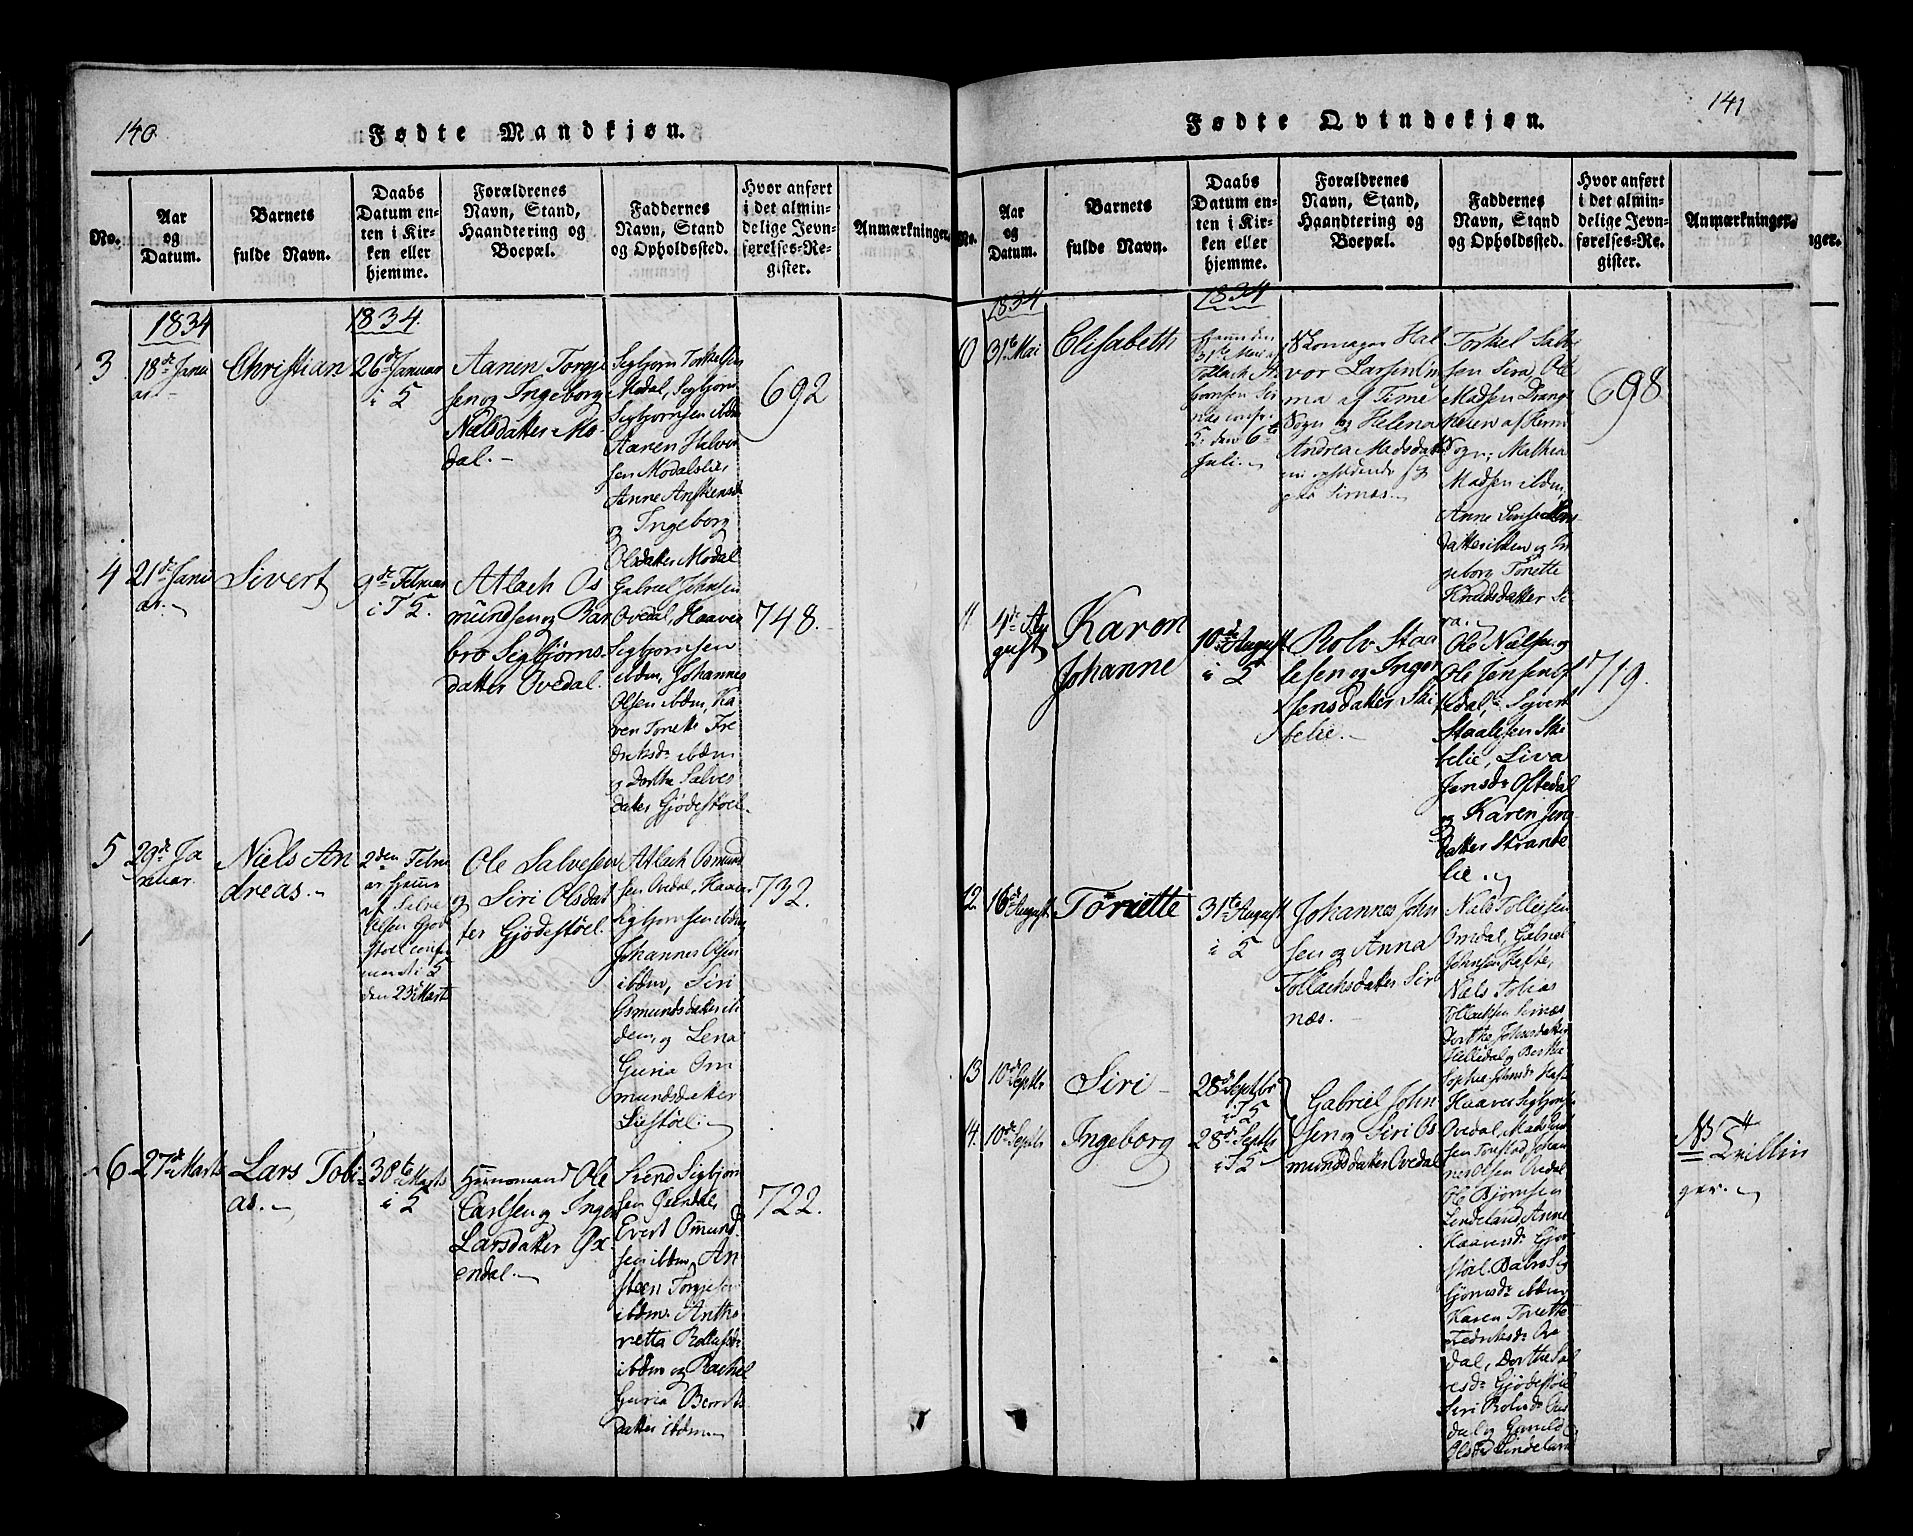 140.
Fødte Mandkjøn.
No.
Aar
og
Datum.
Barnets
fulde Navn.
Daabs
Datum en-
ten i Kir-
ken eller
hjemme.
Forældrenes
Navn, Stand,
Haandtering og
Boepæl.
Faddernes
Navn, Stand
og Opholdssted.
Hvor anført
i det almin-
delige Jevn-
førelses-Re-
gister.
Anmærkninger.
1834
1834.
3
18de Janu
ar
Christian
26de Januar
i S
Aanen Torgje
sen og Ingeborg
Nielsdatter Mo-
dal.
Sigbjørn Torkelsen
Modal, Sigbjørn
Sigbjørnsen ibdm
Aanen Halvor
sen Modalslie,
Anne
og Ingeborg
Olsdatter Modal
692
4
21de Janu
ar.
Sivert
9de Februar
i S.
Atlach Os
mundsen og Bar
bro Sigbjørns-
datter Ovedal.
Gabriel Johnsen
Ovedal, Haaver
Sigbjørnsen
ibdm, Johannes
Olsen ibdm, Ka
ren Tonette Fre
driksdr ibdm
og Dorthe Salves
datter Gjødestøel.
748.
5
29de Ja
nuar.
Niels An
dreas.
2den Febru
ar hjemme
af Salve
Olsen Gjøde
støel confir
meret i S
den 23de Marts
Ole Salvesen
og Siri Olsdat
ter Gjødestøel.
Atlach Osmund
sen Ovedal, Haaver
Sigbjørnsen ibdm
Johannes Olsen
ibdm, Siri
Osmundsdatter ib
dem, og Lena
Guria Om
mundsdatter
Liestøel.
732.
6
27de Marts
Lars Tobi
as.
30te Marts
i S
Huusmand Ole
Carlsen og Inger
Larsdatter Øx
endal.
Svend Sigbjørn
sen Øxendal,
Evert Ommund
sen ibdm, An
steen Torgjesen
ibdm. Antho
netta Rollufsdr
ibdm og Rachel
Guria Berents
datter ibdm.
722.
141
Fødte Qvindekjøn.
No.
Aar
og
Datum.
Barnets
fulde Navn.
Daabs
Datum en-
ten i Kir-
ken eller
hjemme.
Forældrenes
Navn, Stand,
Haandtering og
Boepæl.
Faddernes
Navn, Stand
og Opholdssted.
Hvor anført
i det almin-
delige Jevn-
førelses-Re-
gister.
Anmærkninger.
nger.
1834
1834
10
31te Mai
Elisabeth
Hjemme den
31te Mai af
Tollach As
bjørnsen Sir
næs confir.
S. den 6te
Juli.
Skomager Hal
vor Larsen
af Time
Sogn og Helena
Andrea Madsdatter
nu opholdende sig
paa Sirnæs.
Torkel Salve
sen Sira, Ole
Madsen Drang
af Herre
Sogn, Mathea
Madsen ibdm,
Anne
datter ibdem og In
geborg Tonette
Knudsdatter Si
ra.
698
11
4de Au
gust
Karen
Johanne
10de August
i S
Rolv Staa
lesen og Inger
Jensdatter Ski
belie.
Ole Nielsen og
Ole Jensen Of
tedal, Syvert
Staalesen Ski
belie, Siva
Jensdr Oftedal
og Karen Jens
datter Strande
lie.
719.
12.
16de August
Tonette
31te August
i S
Johannes John
sen og Anna
Tollachsdatter Sir
næs.
Niels Tollefsen
Omdal, Gabriel
Johnsen Hafte,
Niels Tobias
Tollachsen Sirnæs
Dorthe Johnsdatter
og Berthe
Sophie Johnsdr
13
10de Septbr
Siri
28de Septbr
i S
Gabriel John
sen og Siri Os
mundsdatter Ovedal
Haaver Sigbjørns.
Ovedal, Mads
sen Tonstad, Johan
nes Olsen Ovedal
Ole Bjørnsen
Lindeland, Anne
Haaversdr Gjøde
støel. Babro Sig
bjørnsdr ibdm
Karen Tonette
Fedriksdr Ove
dal, Dorthe Sal
vesdr Gjødestøel
Siri Rolvsdr Ous
dal og Gunild
Olsdr Lindeland
14.
10de Septbr
Ingeborg
28de Septbr
i S
NB Tvillin
ger.